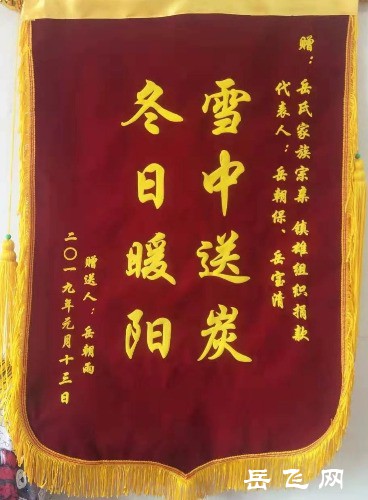 赠：岳氏家族宗亲 镇雄组织捐款
代表人：岳朝保、岳宝清
雪中送炭
冬日暖阳
赠送人：岳朝雨
二〇一九年元月十三日
岳飞网